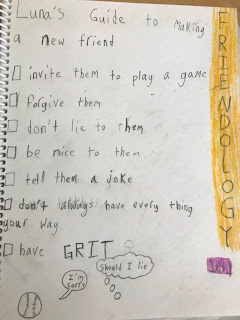 Luna's Guide to Making
a new friend
invite them to play a game
forgive them
don't lie to them
be nice to them
tell them a joke
don't always have every thing
your way
have GRIT
I'm
sorry
Should I lie
FRIENDOLOGY